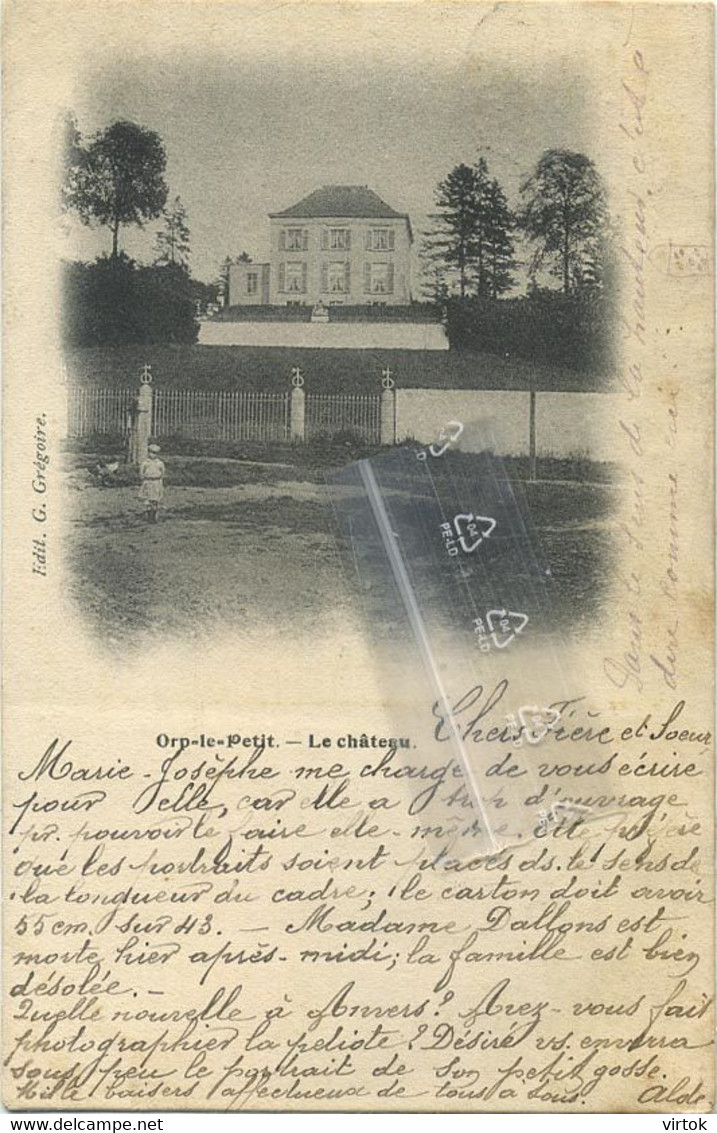 Edit. G. Grégoire.
Orp-le-Petit. — Le château.
Chers Frère et Soeur,
Marie-Josèphe me charge de vous écrire
pour elle, car elle a trop d'ouvrage
pr. pouvoir le faire elle-même. Elle préfère
que les portraits soient placés ds. le sens de
la longueur du cadre; le carton doit avoir
55cm. sur 43. — Madame Dallons est
morte hier après-midi; la famille est bien
désolée. —
Quelle nouvelle à Anvers? Avez-vous fait
photographier la petiote? Désiré vs. enverra
sous peu le portrait de son petit gosse.
Mille baisers affectueux de tous à tous. Alde
Dans le sens de la hauteur, c'est à
dire comme ceci:
04
PE-LD
04
PE-LD
virtok